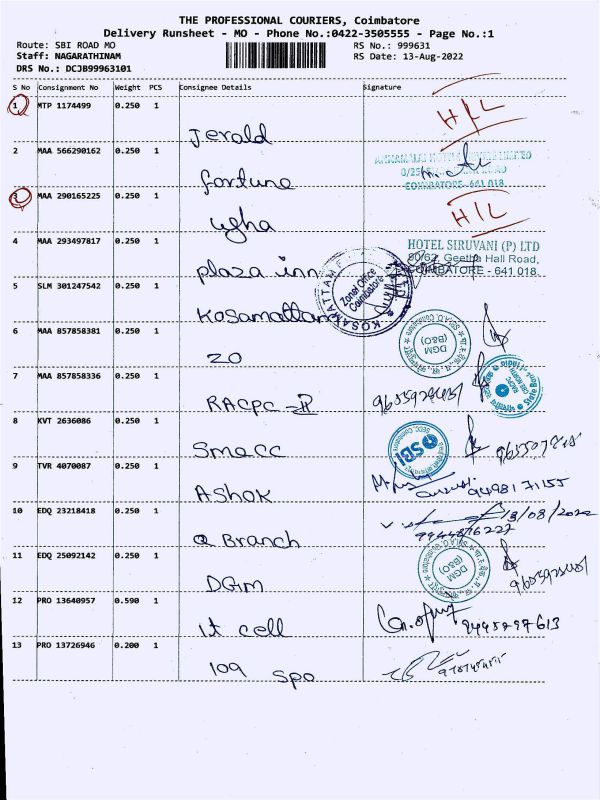 THE PROFESSIONAL COURIERS, Coimbatore
Delivery Runsheet - MO - Phone No.:0422-3505555 - Page No.:1
Route: SBI ROAD MO
RS No.: 999631
Staff: NAGARATHINAM
RS Date: 13-Aug-2022
DRS No.: DCJB99963101
S No Consignment No Weight PCS Consignee Details Signature
1 MTP 1174499 0.250 1
Jerald
H/L
2 MAA 566290162 0.250 1
fortune
COIMBATORE - 641 018
3 MAA 290165225 0.250 1
ugha
H/L
4 MAA 293497817 0.250 1
plaza inn
HOTEL SIRUVANI (P) LTD
90/62, Geetha Hall Road,
COIMBATORE - 641 018.
5 SLM 301247542 0.250 1
Kosamattam
KOSAMATTAM
Zonal Office
Coimbatore
6 MAA 857858381 0.250 1
ZO
DGM
(B&O)
7 MAA 857858336 0.250 1
RACPC - II
8 KVT 2636086 0.250 1
Smecc
SBI
9 TVR 4070087 0.250 1
Ashok
9498171155
10 EDQ 23218418 0.250 1
Q Branch
13/08/2022
9944876227
11 EDQ 25092142 0.250 1
DGM
DGM
(B&O)
12 PRO 13640957 0.590 1
it cell
9445897613
13 PRO 13726946 0.200 1
109 spo